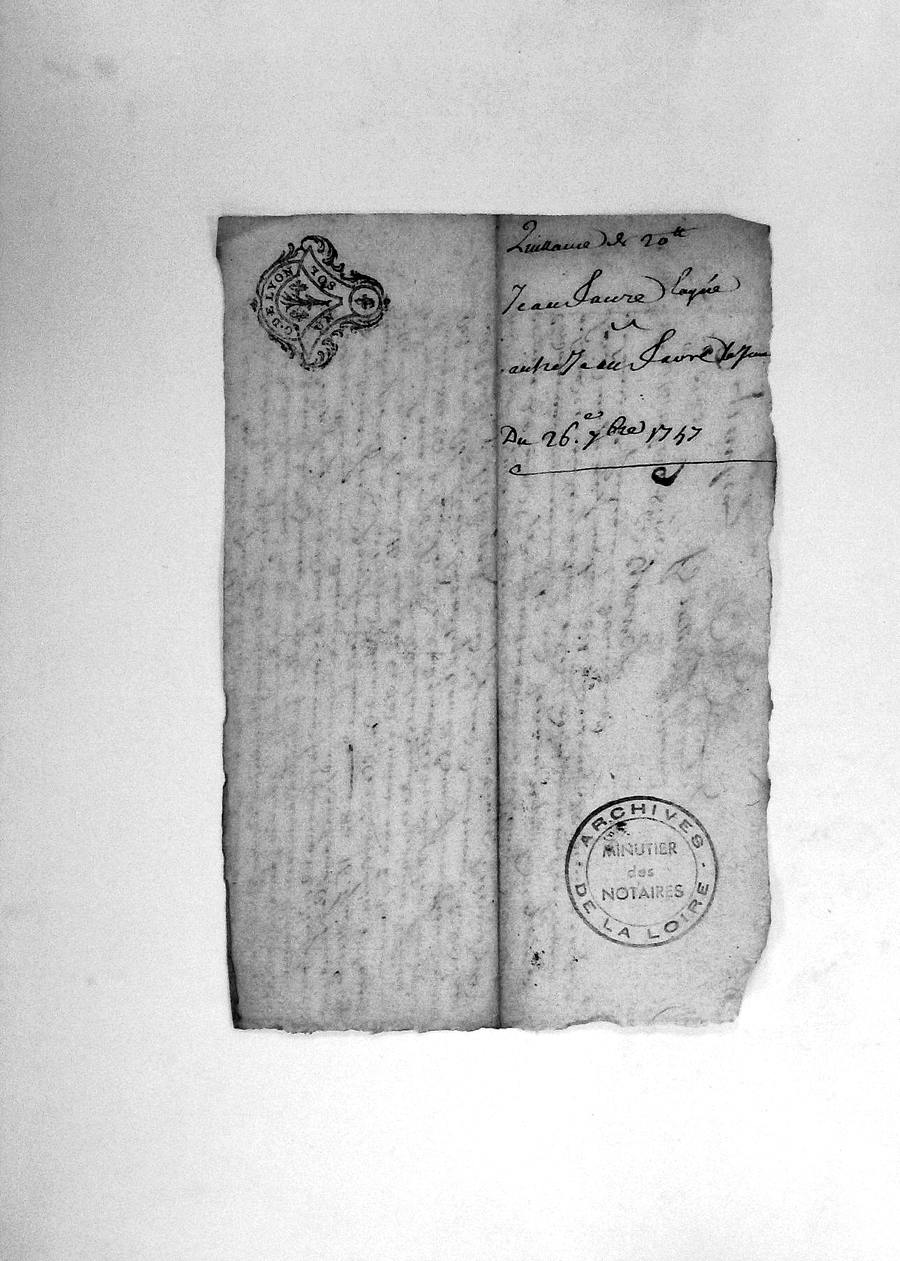 G. DE LYON
UN SOL
Quittance de 20tt
Jean Favre laynée
a
autre Jean Favre le Jeune
Du 26.e 7bre 1757
ARCHIVES
DE LA LOIRE
MINUTIER
des
NOTAIRES